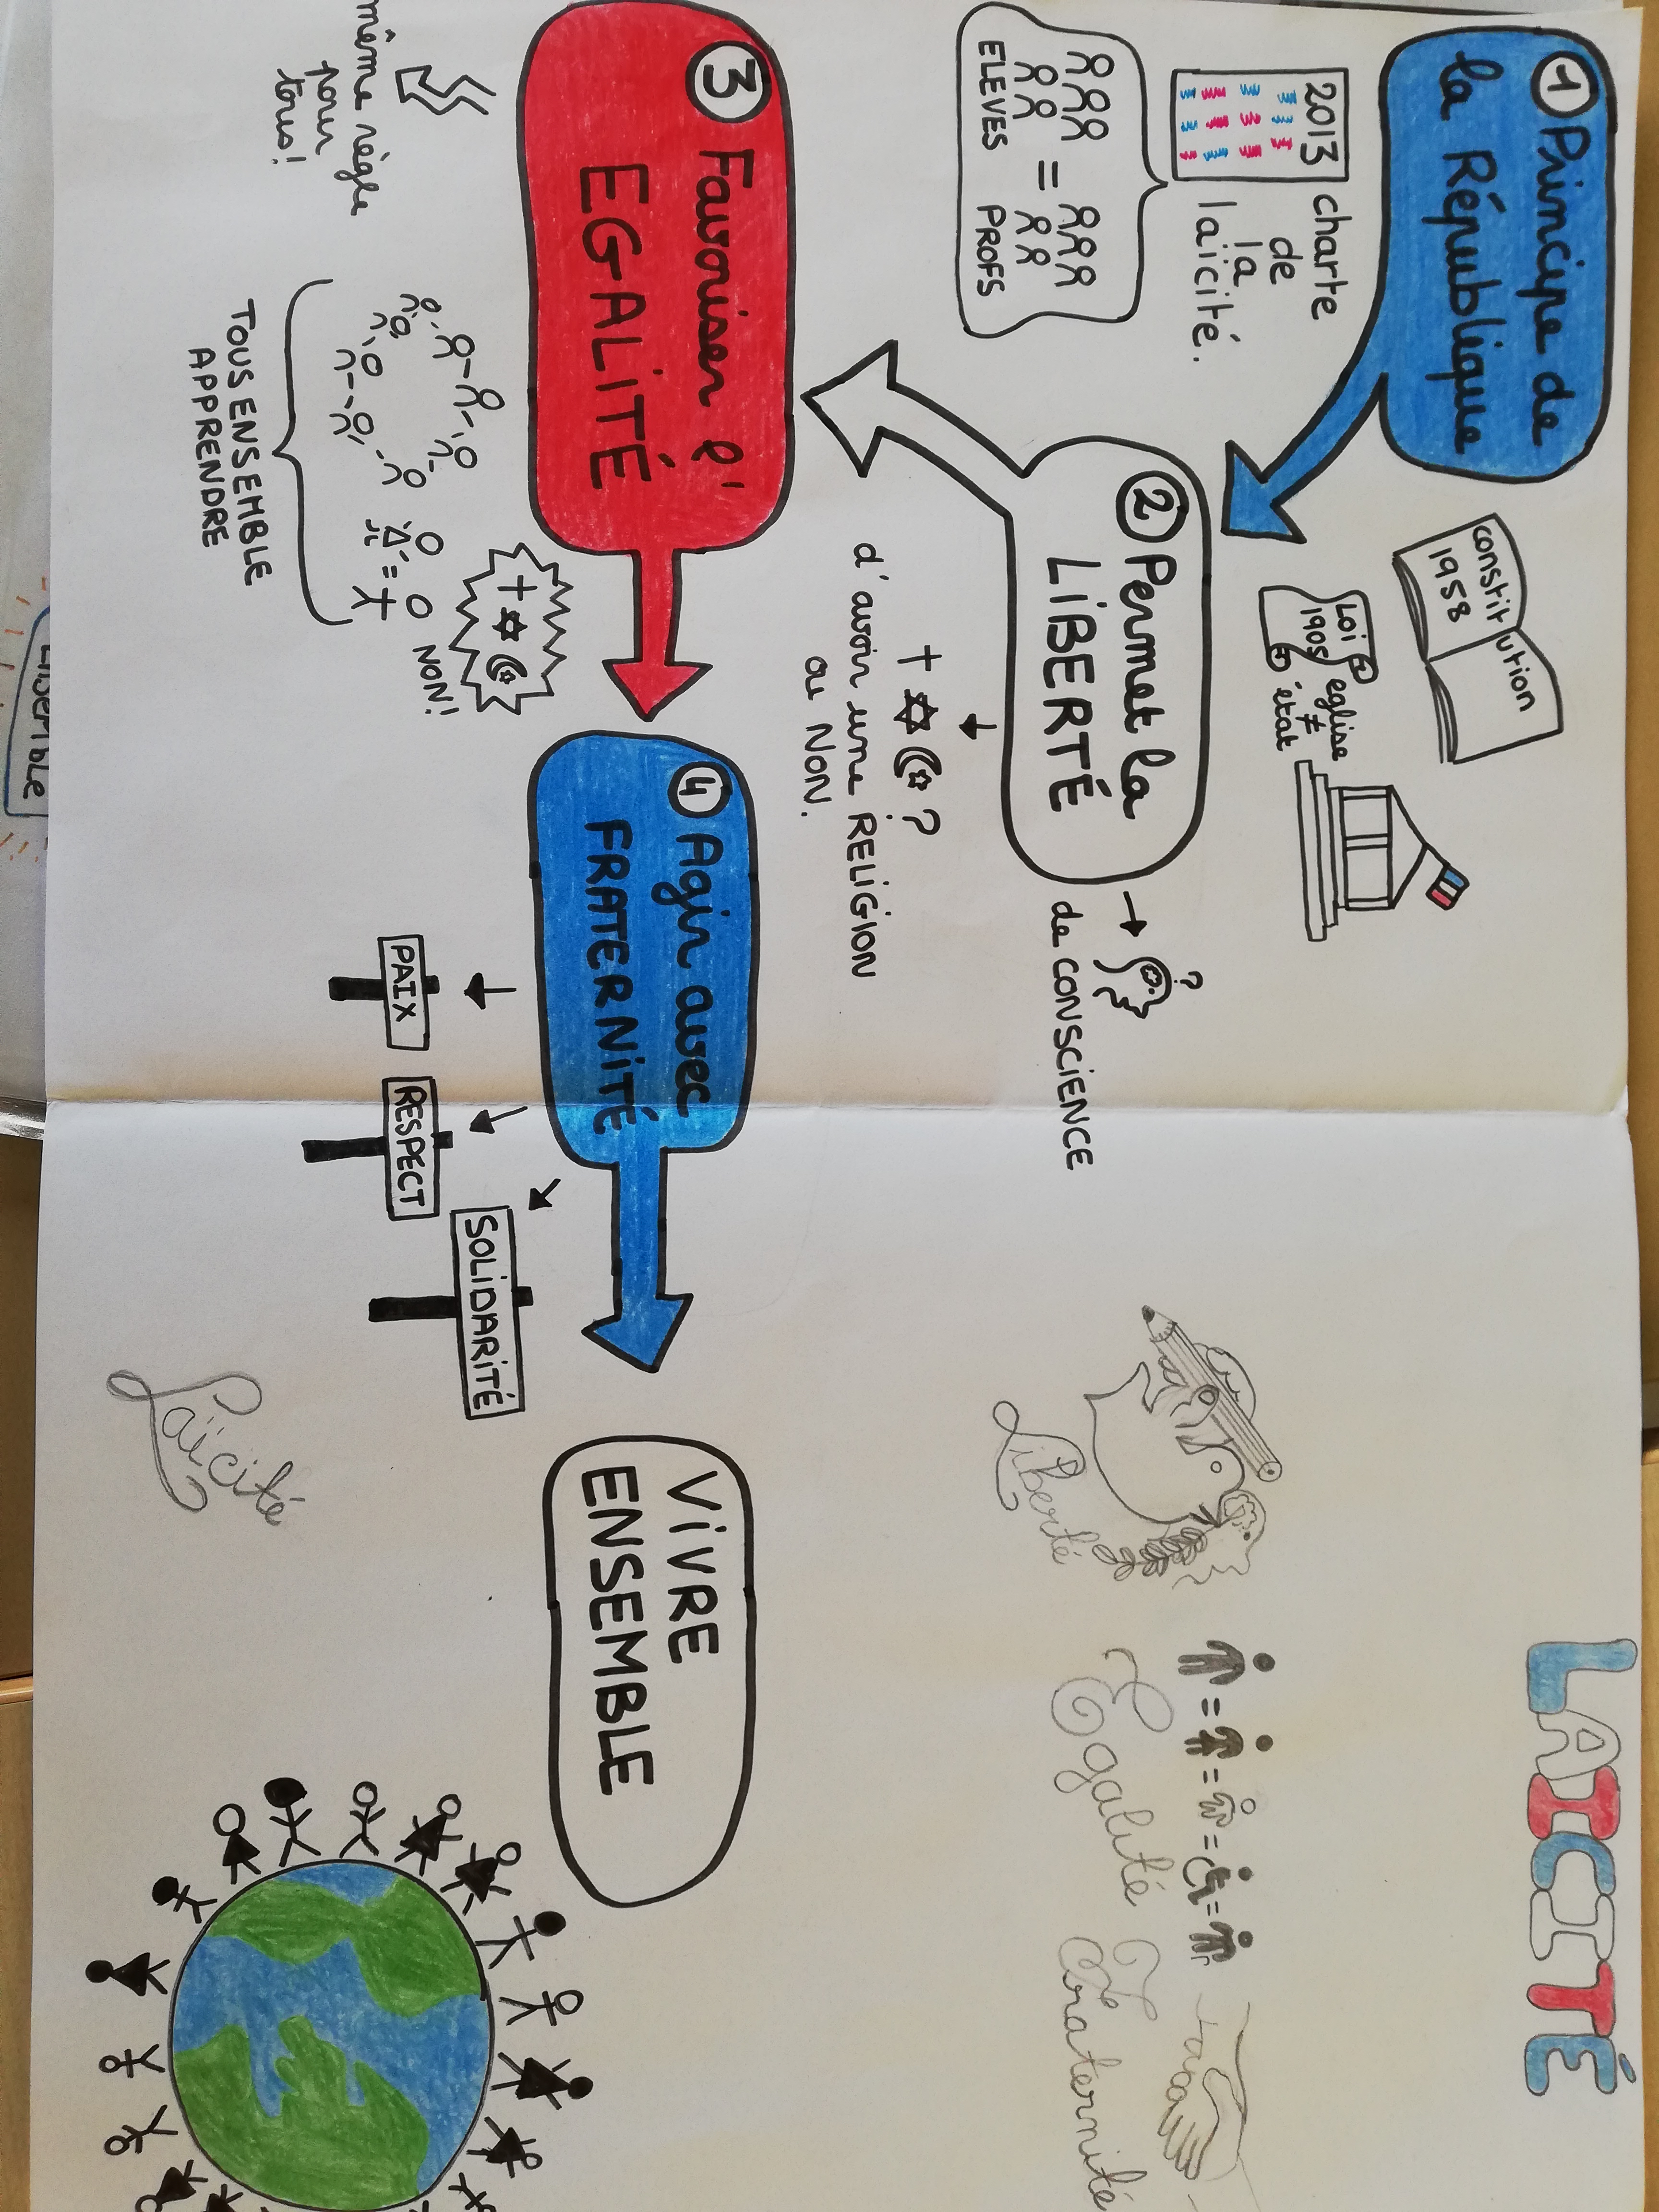 ① Principe de
la République
2013 charte
de
la
laïcité.
ELEVES = PROFS
constitution
1958
Loi
1905
eglise
≠
état
② Permet la
LIBERTÉ
de CONSCIENCE
?
?
d'avoir une RELIGION
ou NON.
③ Favoriser l'
EGALITÉ
même règle
pour
tous!
NON!
TOUS ENSEMBLE
APPRENDRE
④ Agir avec
FRATERNITÉ
PAIX
RESPECT
SOLIDARITÉ
VIVRE
ENSEMBLE
LAICITÉ
Liberté
Egalité
Fraternité
Laïcité